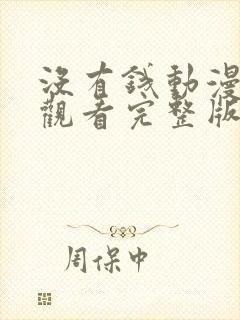 沒有錢動漫
觀看完整版
周保中